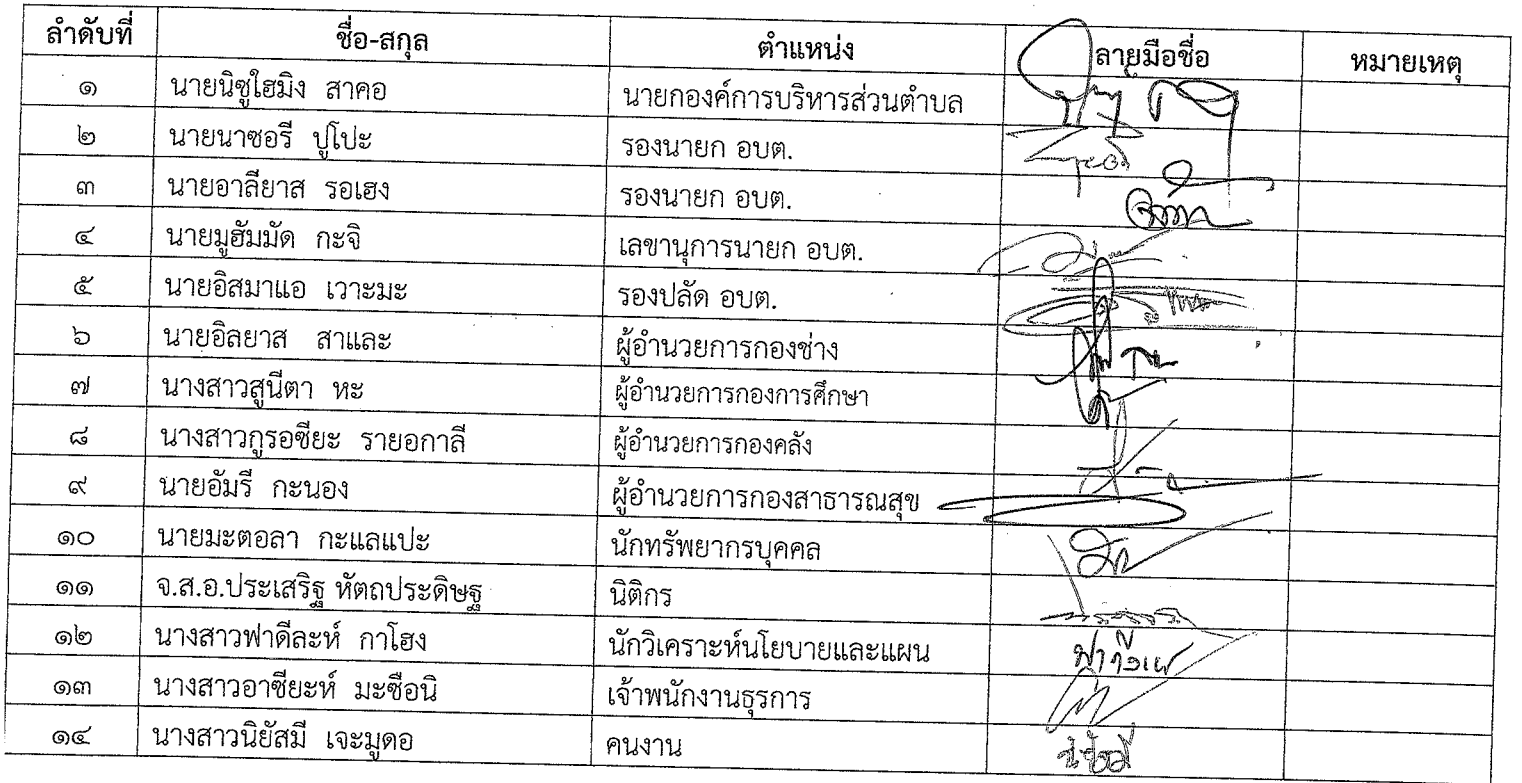 ลำดับที่ ชื่อ-สกุล ตำแหน่ง ลายมือชื่อ หมายเหตุ
๑ นายนิซูไฮมิง สาคอ นายกองค์การบริหารส่วนตำบล
๒ นายนาซอรี ปูโปะ รองนายก อบต.
๓ นายอาลียาส รอเฮง รองนายก อบต.
๔ นายมูฮัมมัด กะจิ เลขานุการนายก อบต.
๕ นายอิสมาแอ เวาะมะ รองปลัด อบต.
๖ นายอิลยาส สาและ ผู้อำนวยการกองช่าง
๗ นางสาวสูนีตา หะ ผู้อำนวยการกองการศึกษา
๘ นางสาวกูรอซียะ รายอกาลี ผู้อำนวยการกองคลัง
๙ นายอัมรี กะนอง ผู้อำนวยการกองสาธารณสุข
๑๐ นายมะตอลา กะแลแปะ นักทรัพยากรบุคคล
๑๑ จ.ส.อ.ประเสริฐ หัตถประดิษฐ นิติกร
๑๒ นางสาวฟาดีละห์ กาโฮง นักวิเคราะห์นโยบายและแผน
๑๓ นางสาวอาซียะห์ มะซือนิ เจ้าพนักงานธุรการ
๑๔ นางสาวนิยัสมี เจะมูดอ คนงาน